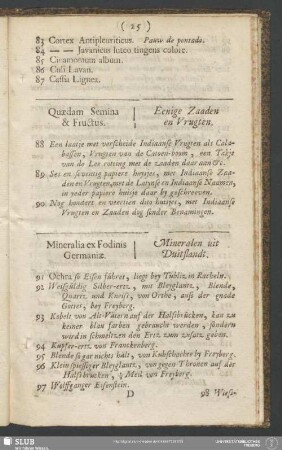 ( 25 )
83 Cortex Antipleuriticus. Pauw de pontado.
84 — — Javanicus luteo tingens colore.
85 Cinamomum album.
86 Culi Lavan.
87 Cassia Lignea.
Quædam Semina
& Fructus.
Eenige Zaaden
en Vrugten.
88 Een laatje met verscheide Indiaanse Vrugten als Calabassen,
Vrugten van de Catoen-boom, een Takje
van de
89 Ses en seventig papiere huisjes, met Indiaanse Zaaden
en Vrugten, met de Latynse en Indiaanse Naamen,
in yeder papiere huisje daar by geschreeven.
90 Nog hondert en veertien dito huisjes, met Indiaanse
Vrugten en Zaaden dog sonder Benamingen.
Mineralia ex Fodinis
Germaniæ.
Mineralen uit
Duitslandt.
91 Ochra so Eisen führet, liegt bey Tublitz in Karheln.
92 Weisgüldig Silber-ertz, mit Bleyglantz, Blende,
Quartz und Kneist, von Orthe, auss der gnade
Gottes, bey Freyburg.
93 Kobelt von Alt-Vätern auf der Halsbrücken, kan zu
keiner blau farben gebraucht werden, sondern
wird in schmeltzen den Ertz zum zusatz geben.
94 Kupfer-ertz von Franckenberg.
95 Blende so gar nichts hält, von Kubschacht by Freyberg.
96 Klein spiessiger Bleyglantz, von gegen Thronen auf der
Halsbrucken, ½ Meil von Freyberg.
97 Wolffganger Eisenstein.
D
98 Weise-